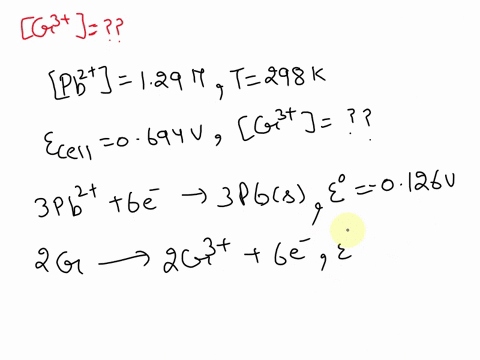 [Cr³⁺] = ??
[Pb²⁺] = 1.29 M, T = 298 K
Ecell = 0.694 V, [Cr³⁺] = ??
3Pb²⁺ + 6e⁻ → 3Pb(s), ε° = -0.126 V
2Cr → 2Cr³⁺ + 6e⁻, ε